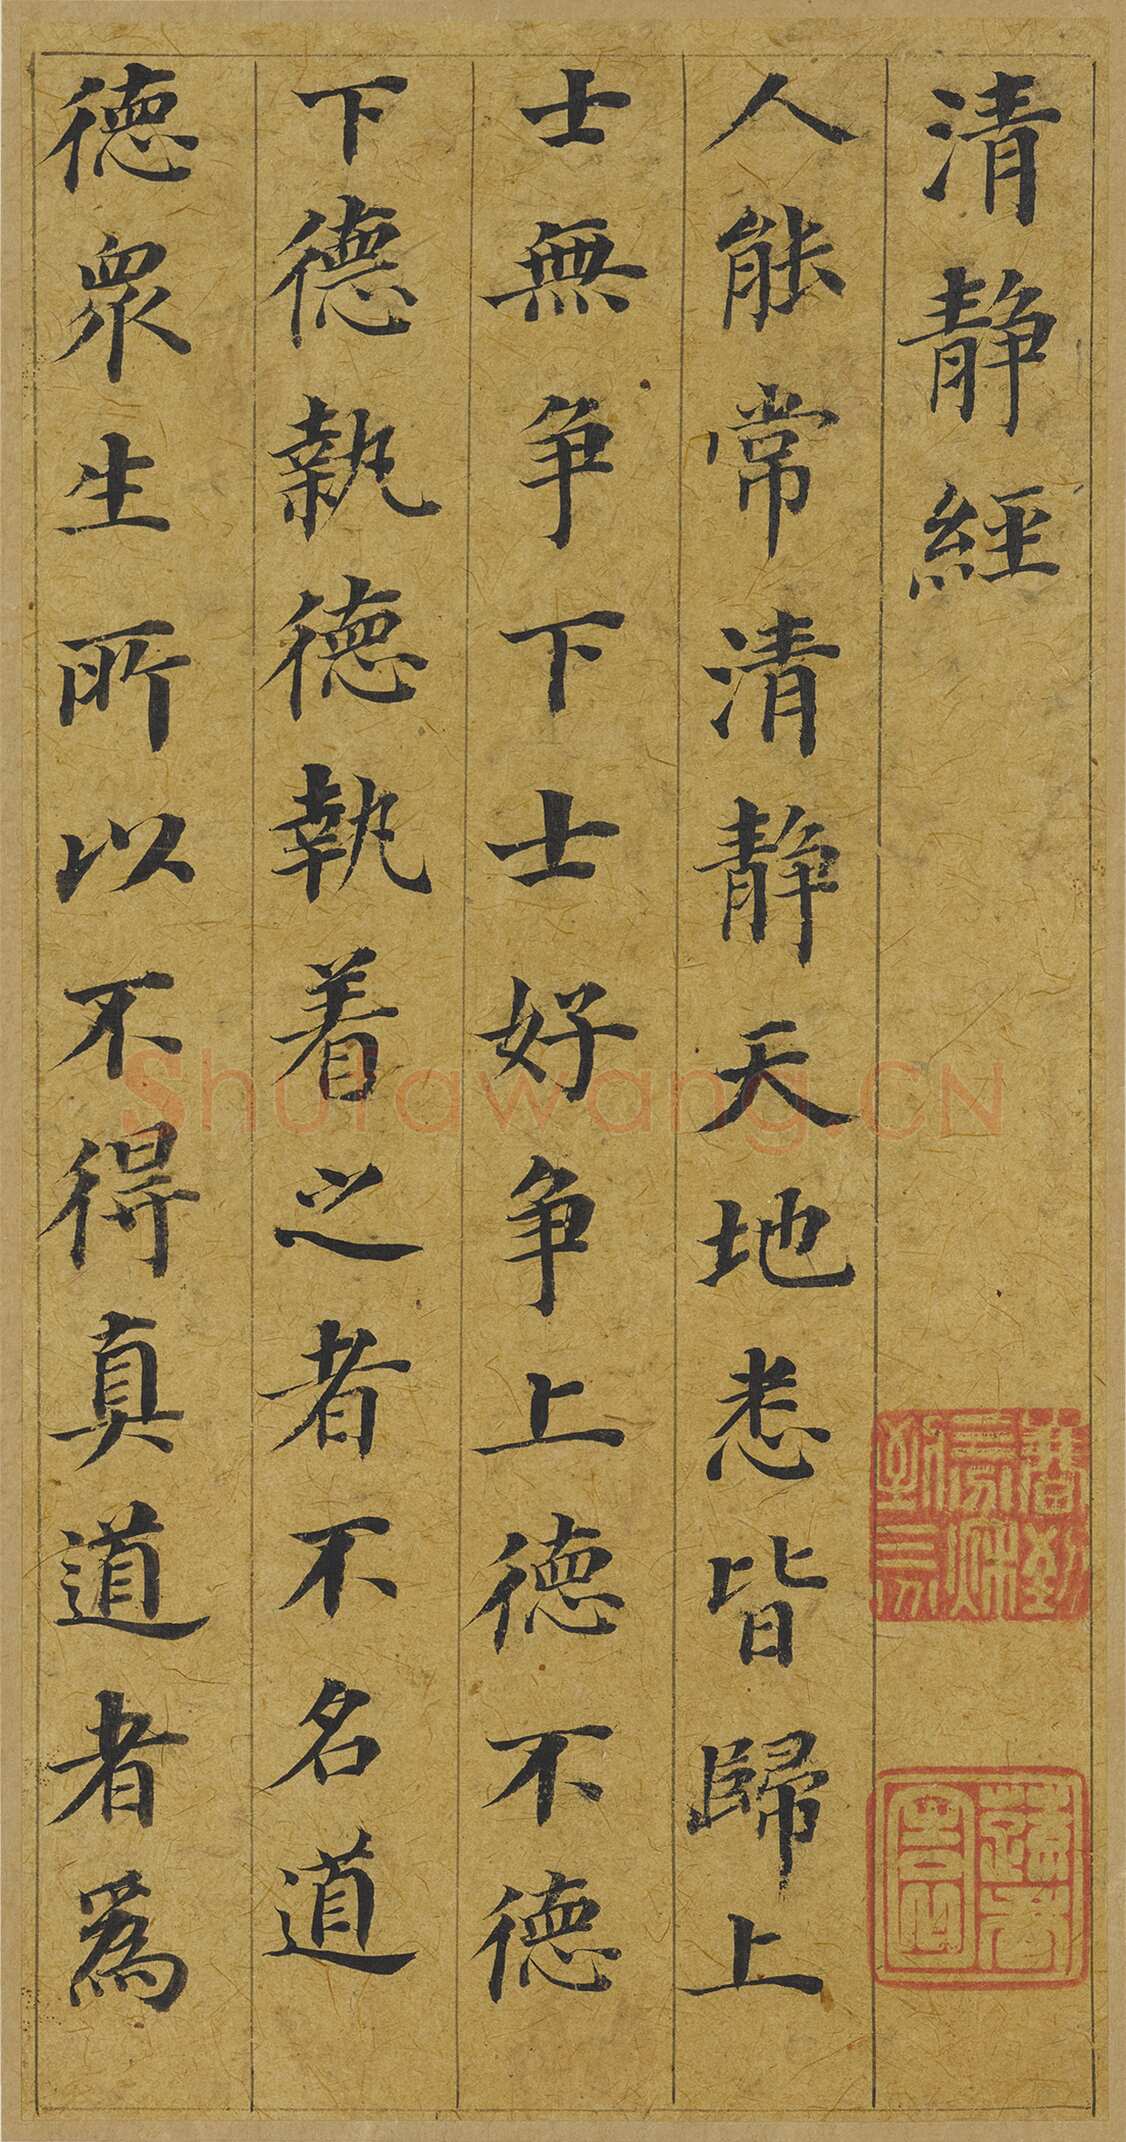 清静經
人能常清静天地悉皆歸上
士無争下士好争上德不德
下德執德執着之者不名道
德眾生所以不得真道者為
Shufawang.CN